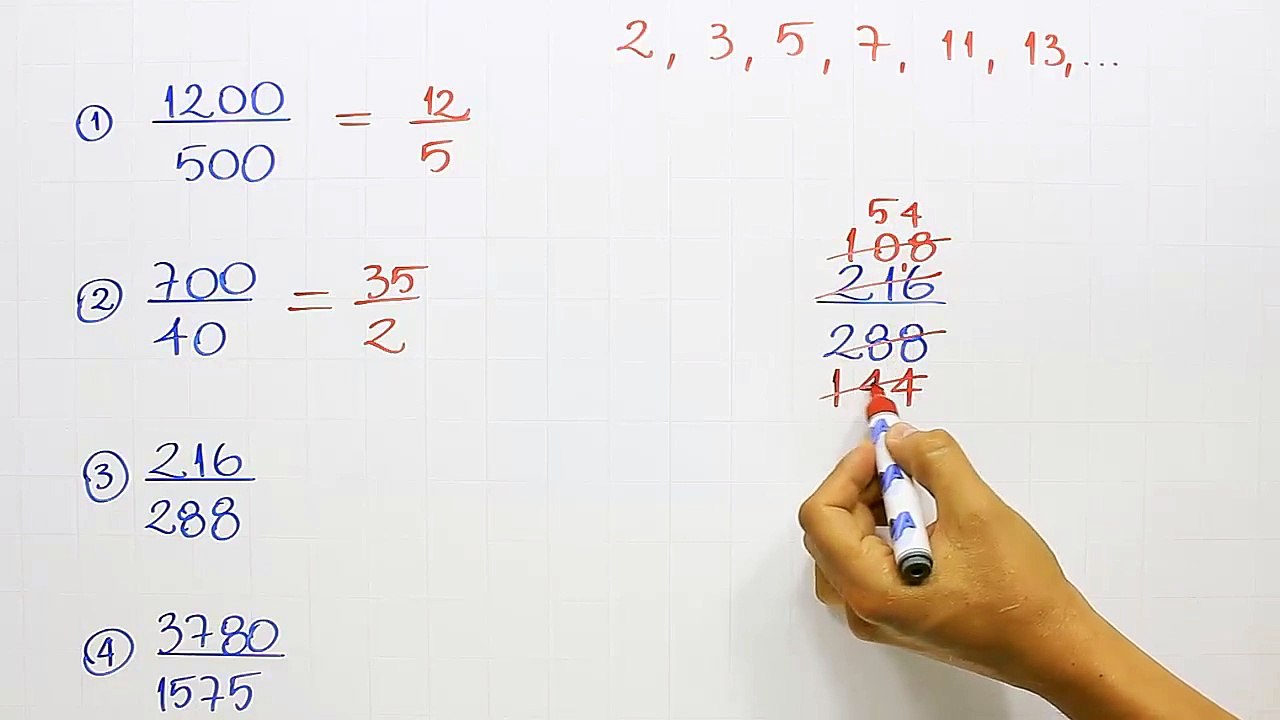 2, 3, 5, 7, 11, 13, ...
① 1200/500 = 12/5
② 700/40 = 35/2
③ 216/288
④ 3780/1575
54
108
216
288
144